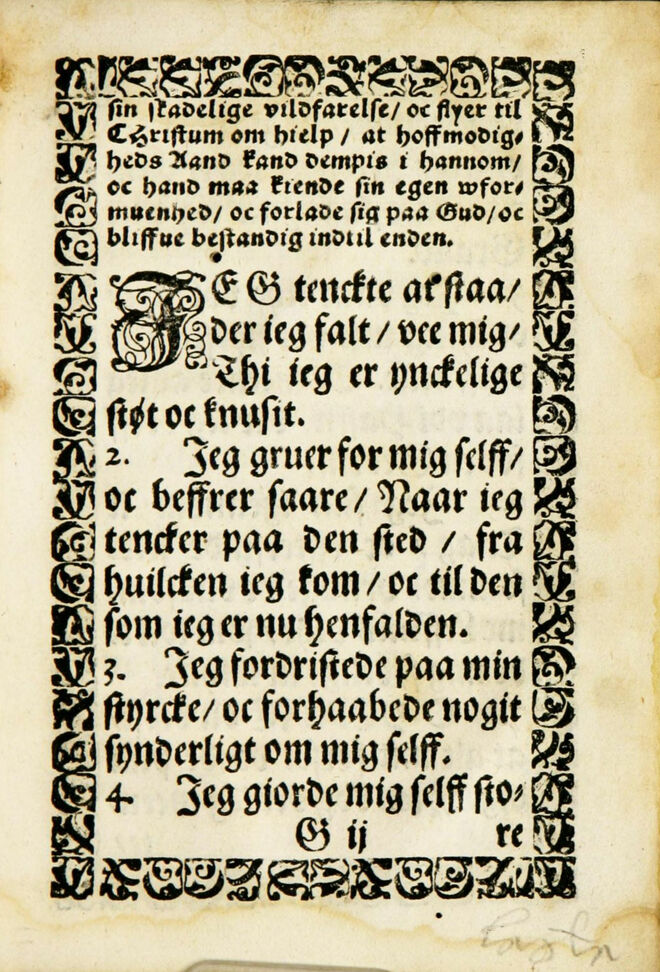 sin skadelige vildfarelse/ oc flyer til
CHristum om hielp / at hoffmodig⸗
heds Aand kand dempis i hannom/
oc hand maa kiende sin egen wfor⸗
muenhed/ oc forlade sig paa Gud/oc
bliffue bestandig indtil enden.
JEG tenckte at staa/
der ieg falt / vee mig/
Thi ieg er ynckelige
støt oc knusit.
2. Jeg gruer for mig selff/
oc beffrer saare/ Naar ieg
tencker paa den sted / fra
huilcken ieg kom / oc til den
som ieg er nu henfalden.
3. Jeg fordristede paa min
styrcke/ oc forhaabede nogit
synderligt om mig selff.
4. Jeg giorde mig selff sto⸗
G ij re